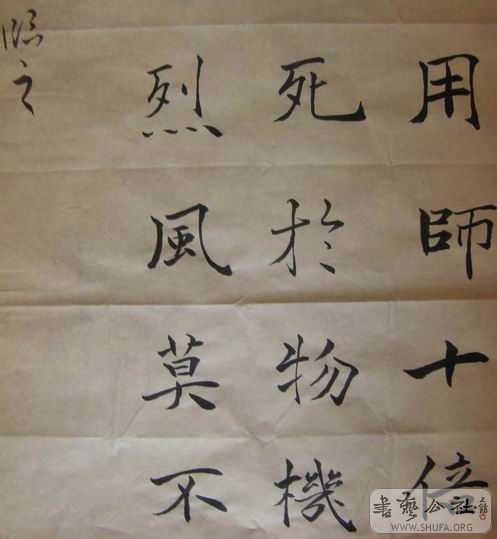 用師十倍
死於物機
烈風莫不
臨之
書藝公社
WWW.SHUFA.ORG